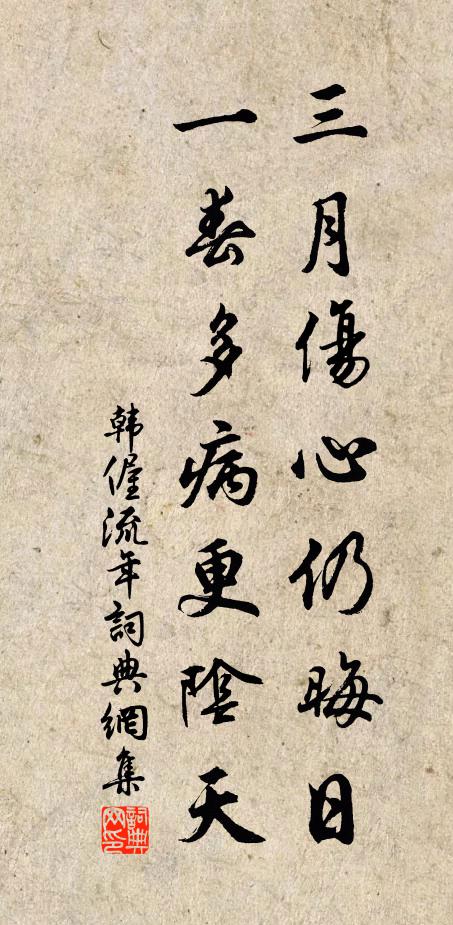 三月傷心仍晦日
一春多病更陰天
韩偓流年詞典網集
詞典网印